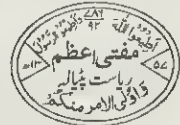 ٧٨٦
٩٢
اطیعوا اللہ واطیعوا الرسول
مفتی اعظم
ریاست پٹیالہ
واولی الامر منکم